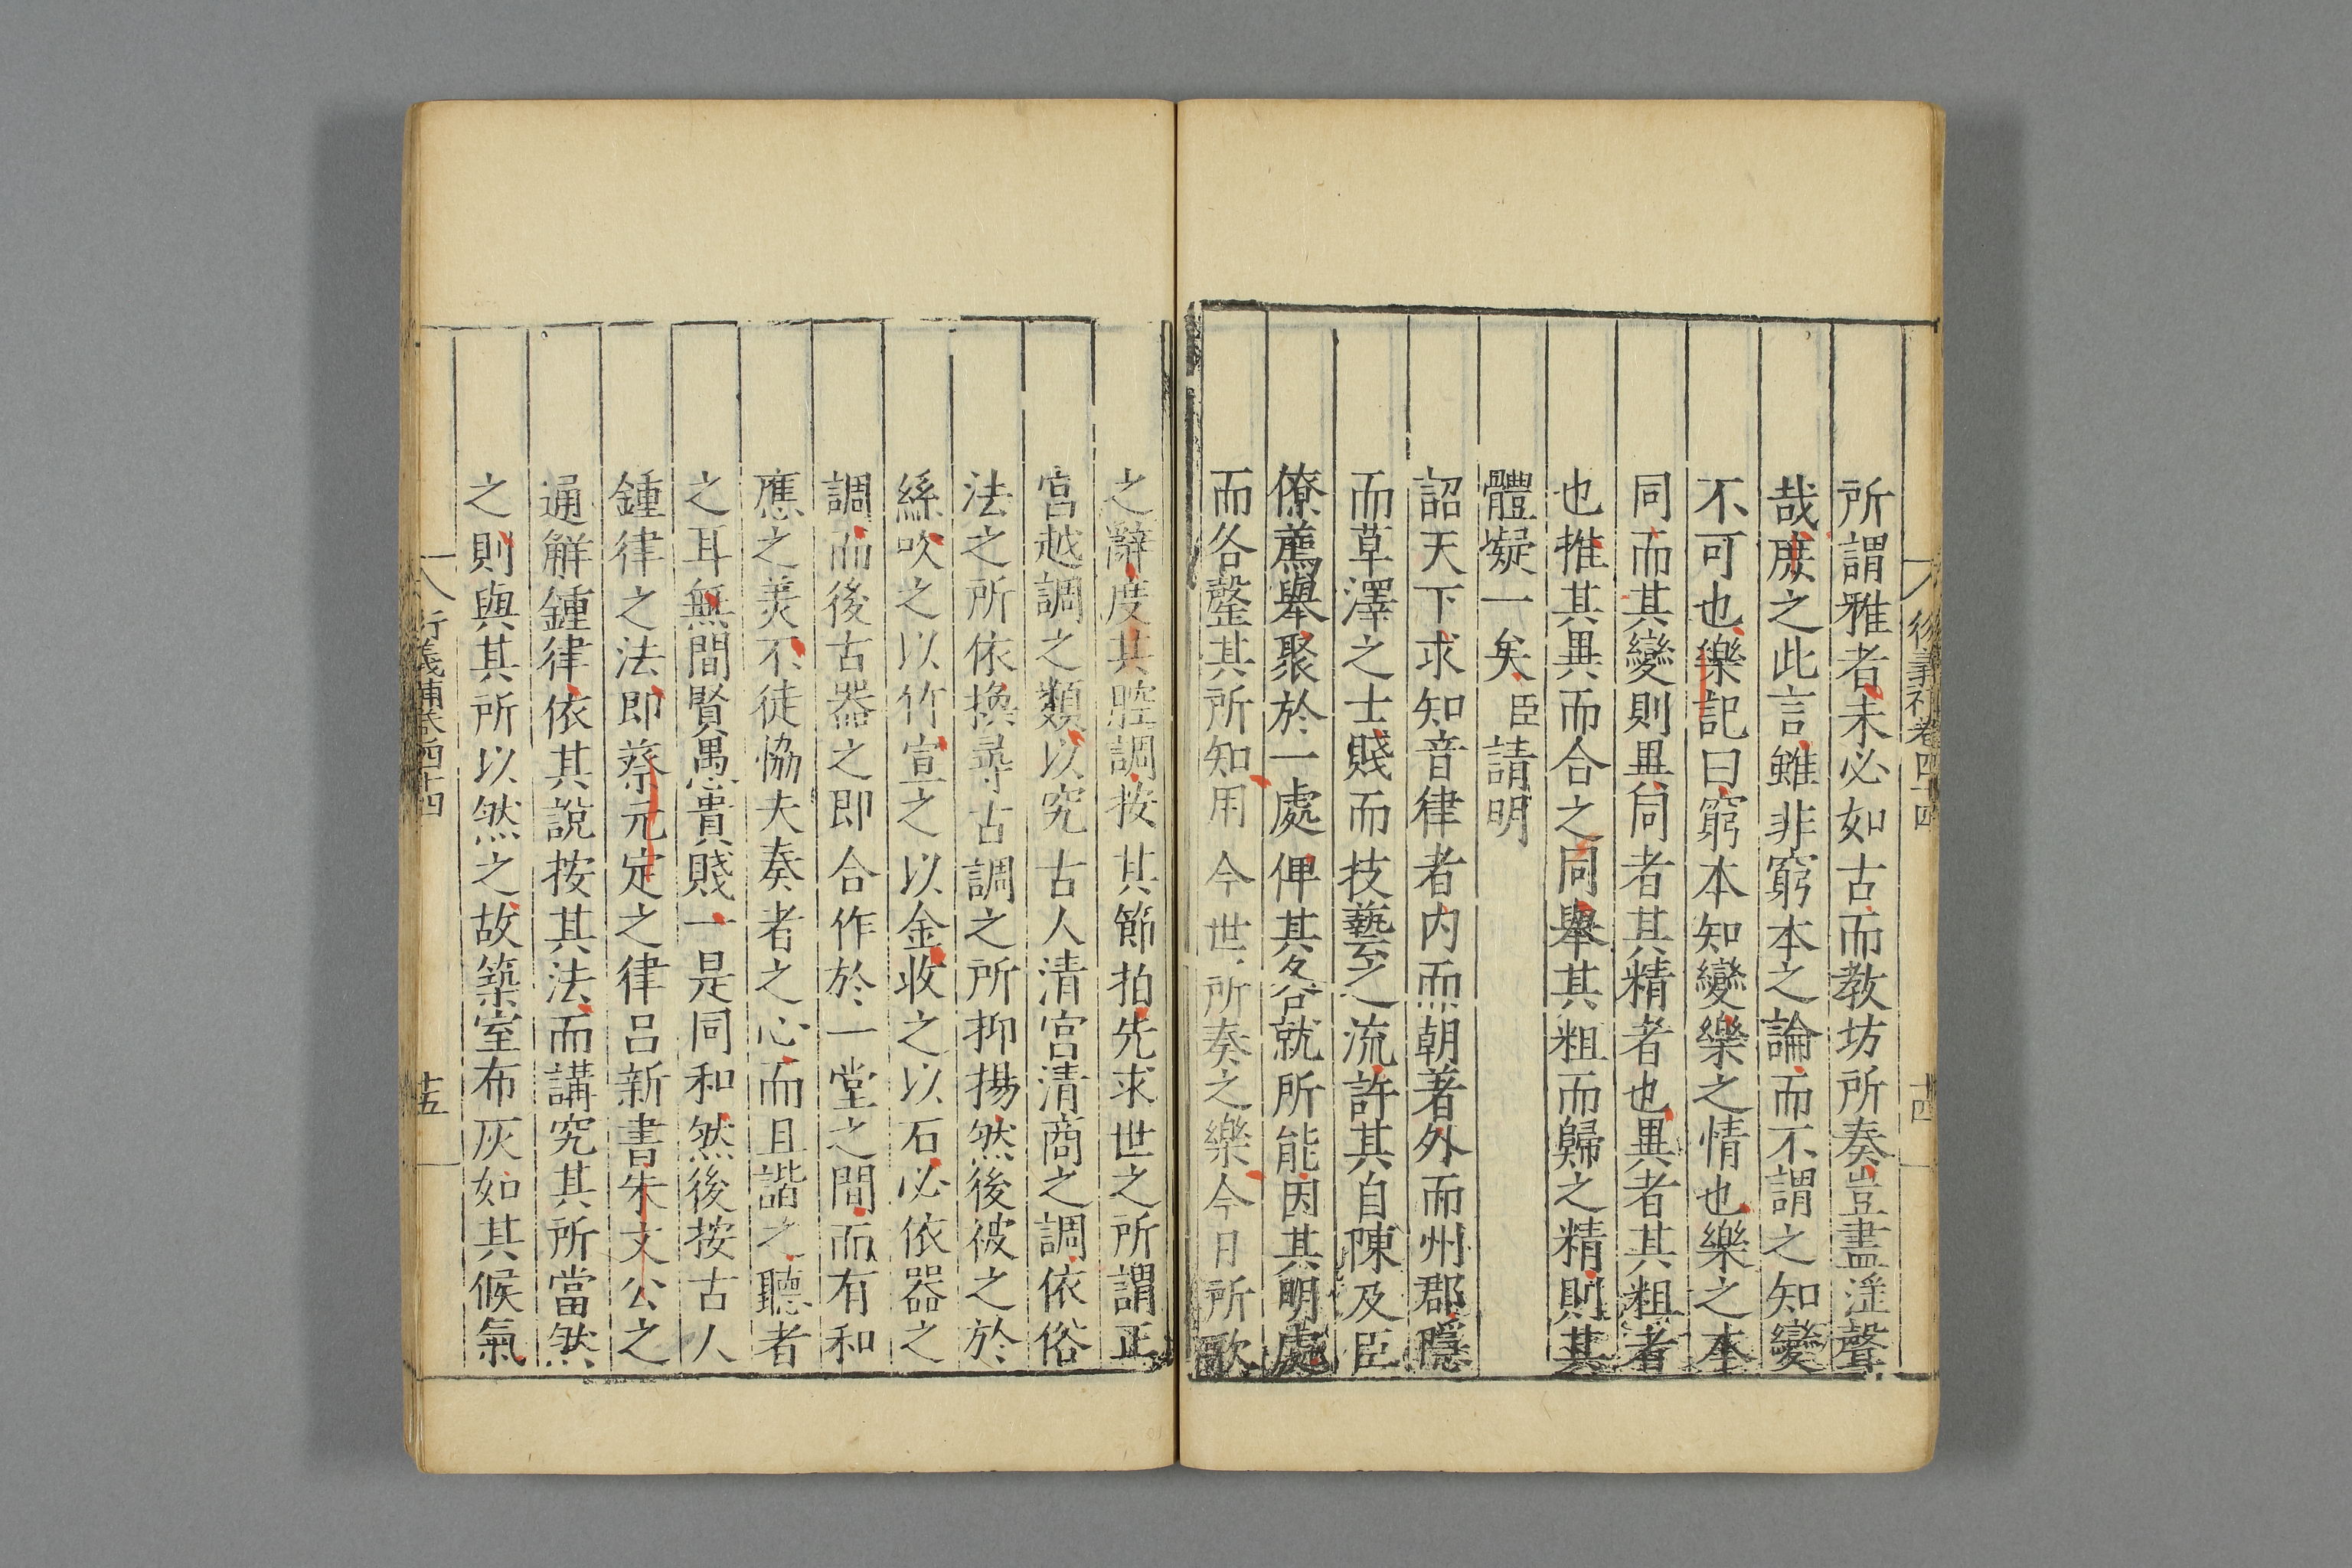 所謂雅者未必如古而教坊所奏豈盡淫聲
哉庻之此言雖非窮本之論而不謂之知變
不可也樂記曰窮本知變樂之情也樂之本
同而其變則異同者其精者也異者其粗者
也推其異而合之同舉其粗而歸之精則其
體凝一矣臣請明
詔天下求知音律者内而朝著外而州郡隱
而草澤之士賤而技藝之流許其自陳及臣
僚薦舉聚於一處俾其各就所能因其明處
而各罄其所知用今世所奏之樂今日所歌
之辭度其腔調按其節拍先求世之所謂正
宮越調之類以究古人清宮清商之調依俗
法之所依換尋古調之所抑揚然後彼之於
絲吹之以竹宣之以金收之以石必依器之
調而後古器之即合作於一堂之間而有和
應之美不徒恊夫奏者之心而且諧之聽者
之耳無間賢愚貴賤一是同和然後按古人
鍾律之法即蔡元定之律呂新書朱文公之
通解鍾律依其說按其法而講究其所當然
之則與其所以然之故築室布灰如其候氣
衍義補卷四十四
十五